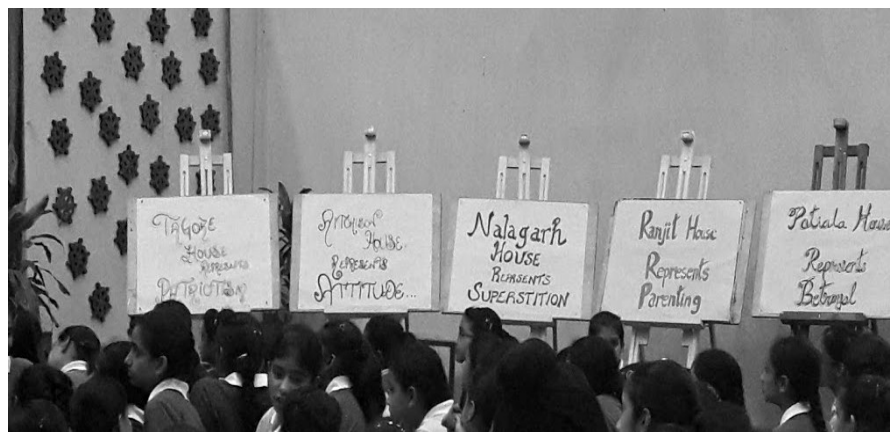 TAGORE
HOUSE
REPRESENTS
PATRIOTISM
AITCHISON
HOUSE
REPRESENTS
ATTITUDE...
Nalagarh
HOUSE
REPRSENTS
SUPERSTITION
Ranjit House
Represents
Parenting
Patiala House
Represents
Betrayal